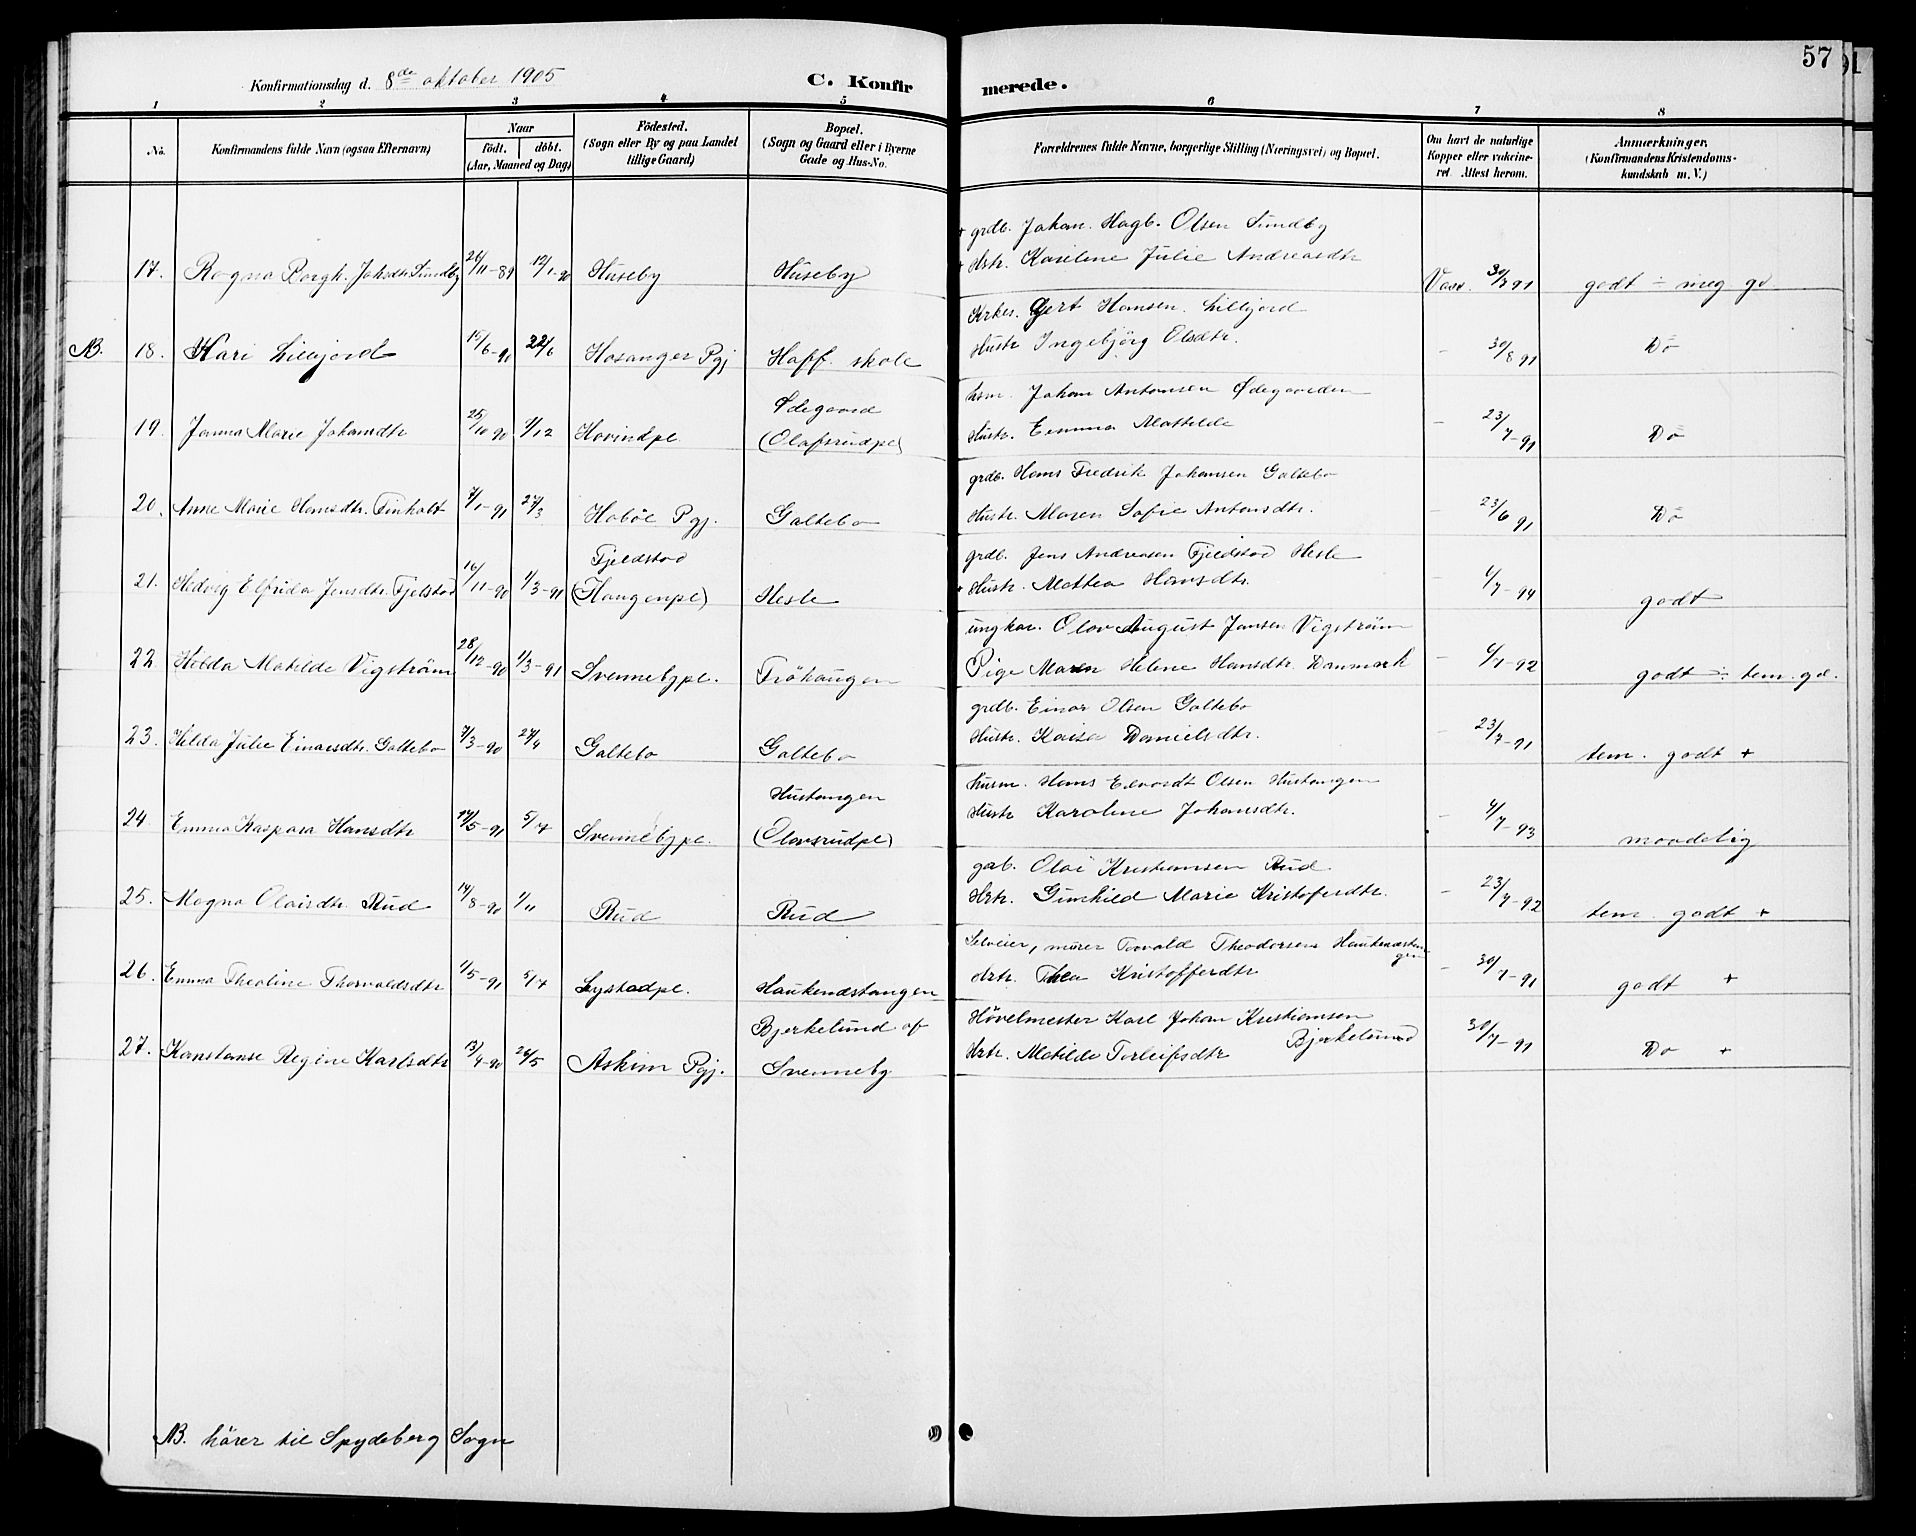 57
Konfirmationsdag d. 8de oktober 1905
C. Konfirmerede.
1 2 3 4 5 6 7 8
No.
Konfirmandens fulde Navn (ogsaa Efternavn)
Naar
födt. döbt.
(Aar, Maaned og Dag)
Födested.
(Sogn eller By og paa Landet
tillige Gaard)
Bopæl.
(Sogn og Gaard eller i Byerne
Gade og Hus-No.
Forældrenes fulde Navne, borgerlige Stilling (Næringsvei) og Bopæl.
Om havt de naturlige
Kopper eller vakcine-
ret. Attest herom.
Anmærkninger.
(Konfirmandens Kristendoms-
kundskab m. V.)
+ grdb. Johan. Hagb. Olsen Sundby
17. Ragna Borgh. Johsdtr Sundby 26/11-89 12/1-90 Huseby Huseby
Hstr. Karoline Julie Andreasdtr Vacc. 30/8 91 godt ÷ meg gd
Krkes. Gert Hansen Lillijord
NB. 18. Kari Lillijord 15/6-90 22/6 Hosanger Pgj Haff. skole
Hustr Ingebjörg Olsdtr. - 30/8 91 Do
19. Janna Marie Johansdtr 25/10 90 7/12 Hovindpl Ødegaard
(Olafsrudpl)
hsm. Johan Antonsen Ødegaarden
Hustr. Emma Mathilde - 23/7-91 Do
20. Anne Marie Hansdtr. Finholt 7/1-91 27/3 Haböl Pgj. Galtebo
grdb. Hans Fredrik Johansen Galtebo
Hustr. Maren Sofie Antonsdtr. - 23/6 91 Do
21. Hedvig Elfrida Jensdtr. Fjelstad 16/11-90 1/3-91 Fjeldstad
(Haugenpl) Hesle
grdb. Jens Andreasen Fjeldstad Hesle
+ Hustr. Mathea Hansdtr. - 6/7-94 godt
22. Hilda Matilde Vigström 28/12-90 1/3-91 Svennebypl. Fröhaugen
ungkar. Olav August Jansen Vigström
Pige Maren Helene Hansdtr. Danmark - 6/7-92 godt ÷ tem. gd.
23. Hilda Julie Einarsdtr. Galtebo 7/3-90 27/4 Galtebo Galtebo
grdb. Einar Olsen Galtebo
Hustr. Kaisa Danielsdtr. - 23/7-91 tem. godt +
24. Emma Kaspara Hansdtr 5/7 Svennebypl. Hustangen
(Olavsrudpl)
husm. Hans Edvardt Olsen Hustangen
Hustr Karoline Johansdtr. - 4/7-93 maadelig
25. Magna Olaisdtr. Rud 14/8-90 1/11 Rud Rud
gab. Olai Kristiansen Rud
Hstr. Gunhild Marie Kristoferdtr. - 23/7-92 tem. godt +
26. Emma Theoline Thorvaldsdtr 1/5-91 5/7 Lystadpl. Haukenæstangen
Selveier, murer Torvald Theodorsen Haukenæstangen
Hstr. Thea Kristofferdtr - 30/7-91 godt +
27. Konstanse Regine Karlsdtr 13/4-90 26/5 Askim Pgj. Bjerkelund af
Svenneby
Hövelmester Karl Johan Kristiansen
Hstr. Matilde Torleifsdtr Bjerkelund 30/7-91 Do +
NB. hörer til Spydeberg Sogn